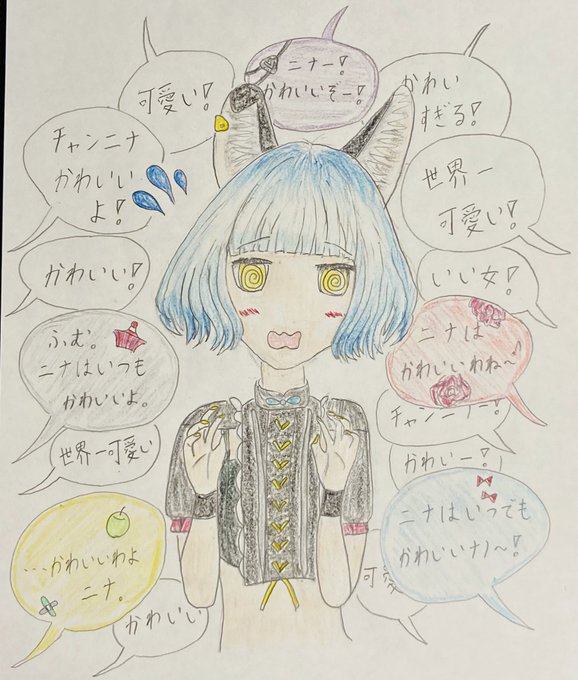 可愛い!
ニナー!
かわいいぞー!
かわい
すぎる!
チャンニナ
かわいい
よ!
世界一
可愛い!
かわいい!
いい女!
ふむ。
ニナはいつも
かわいいよ。
ニナは
かわいいわね〜♪
チャンニナー!
世界一可愛い
かわいー!
ニナはいつでも
かわいいナノ〜!
...かわいいわよ
ニナ。
かわいい
可愛